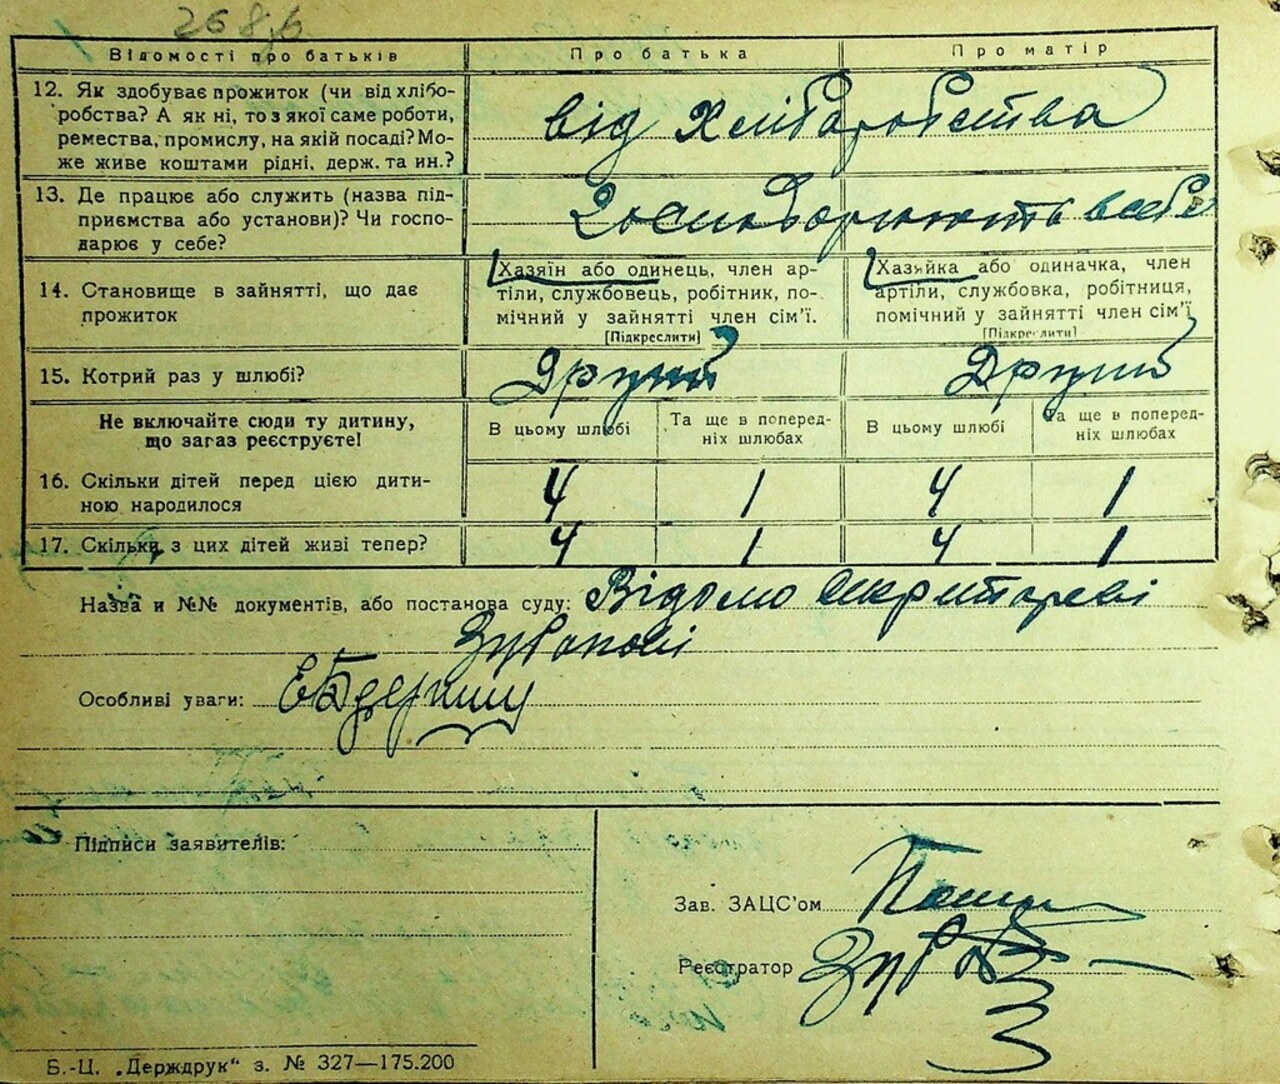 Відомості про батьків
Про батька
Про матір
12. Як здобуває прожиток (чи від хлібо-
робства? А як ні, то з якої саме роботи,
ремества, промислу, на якій посаді? Мо-
же живе коштами рідні, держ. та ин.?
від Хліборобства
13. Де працює або служить (назва під-
приємства або установи)? Чи госпо-
дарює у себе?
Господорюють в себе
14. Становище в зайнятті, що дає
прожиток
Хазяїн або одинець, член ар-
тіли, службовець, робітник, по-
мічний у зайнятті член сім'ї.
[Підкреслити]
Хазяйка або одиначка, член
артіли, службовка, робітниця,
помічний у зайнятті член сім'ї
[Підкреслити]
15. Котрий раз у шлюбі?
Другий
Другий
Не включайте сюди ту дитину,
що загаз реєструєте!
В цьому шлюбі
Та ще в поперед-
ніх шлюбах
В цьому шлюбі
Та ще в поперед-
ніх шлюбах
16. Скільки дітей перед цією дити-
ною народилося
4 1 4 1
17. Скільки з цих дітей живі тепер?
4 1 4 1
Назва и №№ документів, або постанова суду: Відомо секритареві
Особливі уваги:
Підписи заявителів:
Зав. ЗАЦС'ом
Реєстратор
Б.-Ц. „Держдрук“ з. № 327—175.200